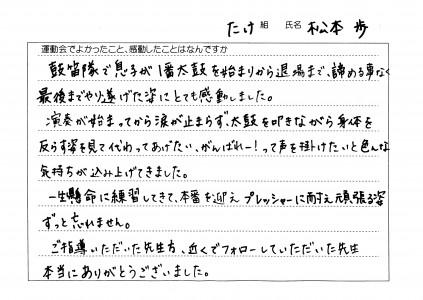 たけ 組 氏名 松本 歩
運動会でよかったこと、感動したことはなんですか
鼓笛隊で息子が1番太鼓を始まりから退場まで、諦める事なく
最後までやり遂げた姿にとても感動しました。
演奏が始まってから涙が止まらず、太鼓を叩きながら身体を
反らす姿を見て代わってあげたい、がんばれー!って声を掛けたいと色んな
気持ちが込み上げてきました。
一生懸命に練習してきて、本番を迎えプレッシャーに耐え頑張る姿
ずっと忘れません。
ご指導いただいた先生方、近くでフォローしていただいた先生
本当にありがとうございました。